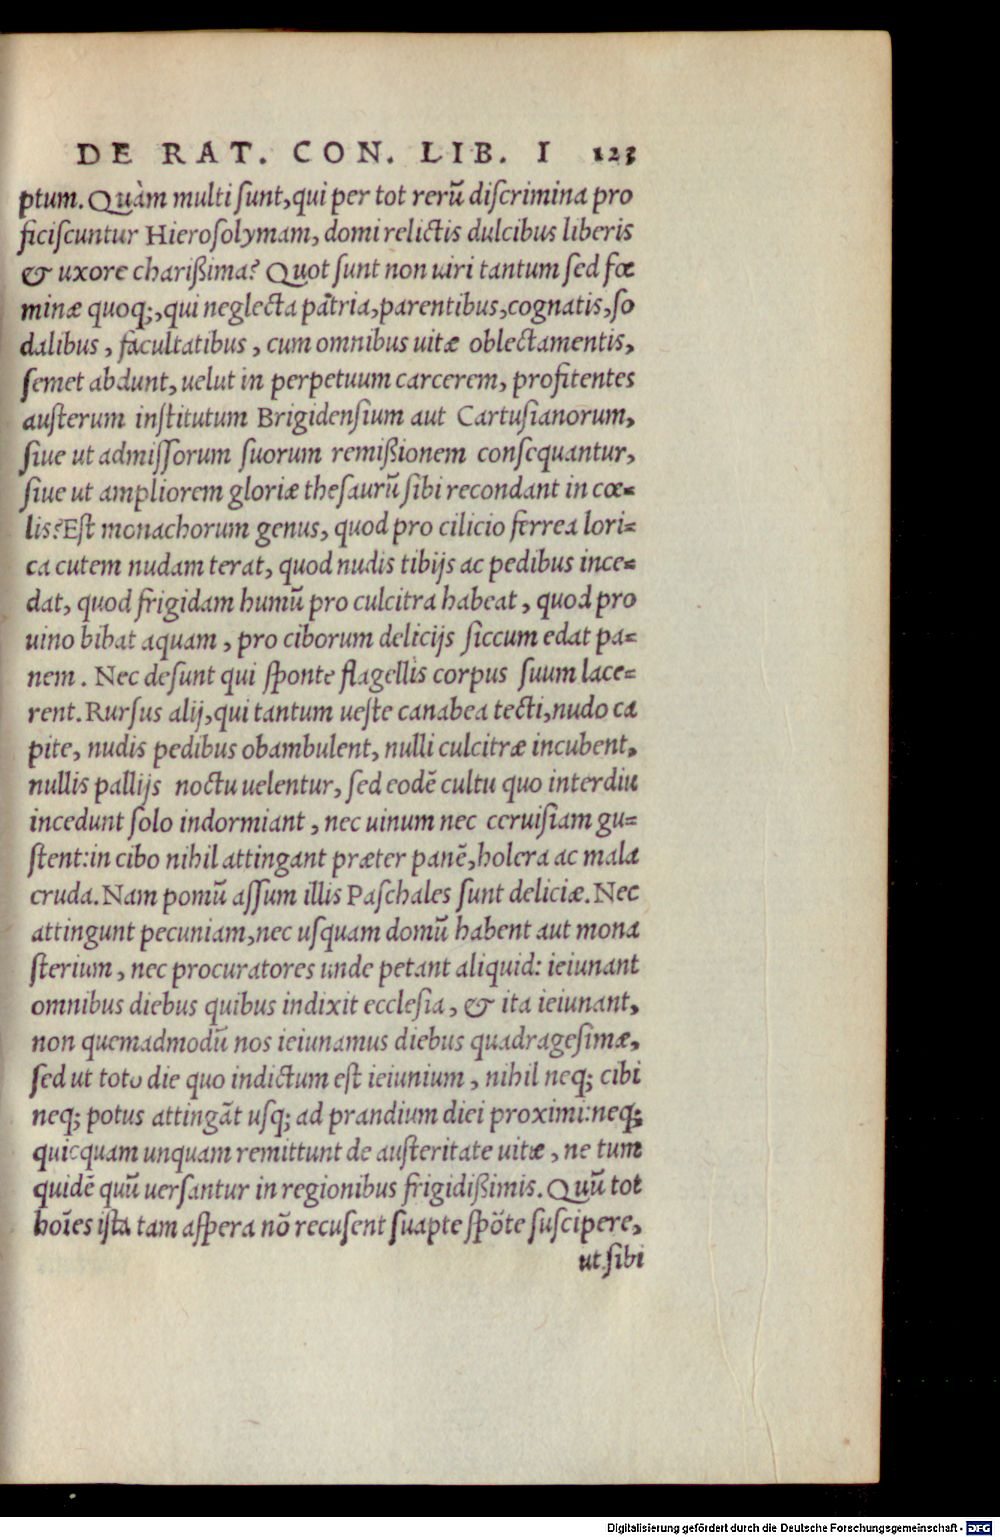 DE RAT. CON. LIB. I 123
ptum. Quàm multi ſunt, qui per tot rerũ diſcrimina pro
ficiſcuntur Hieroſolymam, domi relictis dulcibus liberis
& uxore charißima? Quot ſunt non uiri tantum ſed fœ
minæ quoq;, qui neglecta pãtria, parentibus, cognatis, ſo
dalibus, facultatibus, cum omnibus uitæ oblectamentis,
ſemet abdunt, uelut in perpetuum carcerem, profitentes
auſterum inſtitutum Brigidenſium aut Cartuſianorum,
ſiue ut admiſſorum ſuorum remißionem conſequantur,
ſiue ut ampliorem gloriæ theſaurũ ſibi recondant in cœ=
lis? Eſt monachorum genus, quod pro cilicio ferrea lori=
ca cutem nudam terat, quod nudis tibijs ac pedibus ince=
dat, quod frigidam humũ pro culcitra habeat, quod pro
uino bibat aquam, pro ciborum delicijs ſiccum edat pa=
nem. Nec deſunt qui ſponte flagellis corpus ſuum lace=
rent. Rurſus alij, qui tantum ueſte canabea tecti, nudo ca
pite, nudis pedibus obambulent, nulli culcitræ incubent,
nullis pallijs noctu uelentur, ſed eodẽ cultu quo interdiu
incedunt ſolo indormiant, nec uinum nec ceruiſiam gu=
ſtent: in cibo nihil attingant præter panẽ, holera ac mala
cruda. Nam pomũ aſſum illis Paſchales ſunt deliciæ. Nec
attingunt pecuniam, nec uſquam domũ habent aut mona
ſterium, nec procuratores unde petant aliquid: ieiunant
omnibus diebus quibus indixit eccleſia, & ita ieiunant,
non quemadmodũ nos ieiunamus diebus quadrageſimæ,
ſed ut toto die quo indictum eſt ieiunium, nihil neq; cibi
neq; potus attingãt uſq; ad prandium diei proximi: neq;
quicquam unquam remittunt de auſteritate uitæ, ne tum
quidẽ quũ uerſantur in regionibus frigidißimis. Quũ tot
hoĩes iſta tam aſpera nõ recuſent ſuapte ſpõte ſuſcipere,
ut ſibi
Digitalisierung gefördert durch die Deutsche Forschungsgemeinschaft - DFG